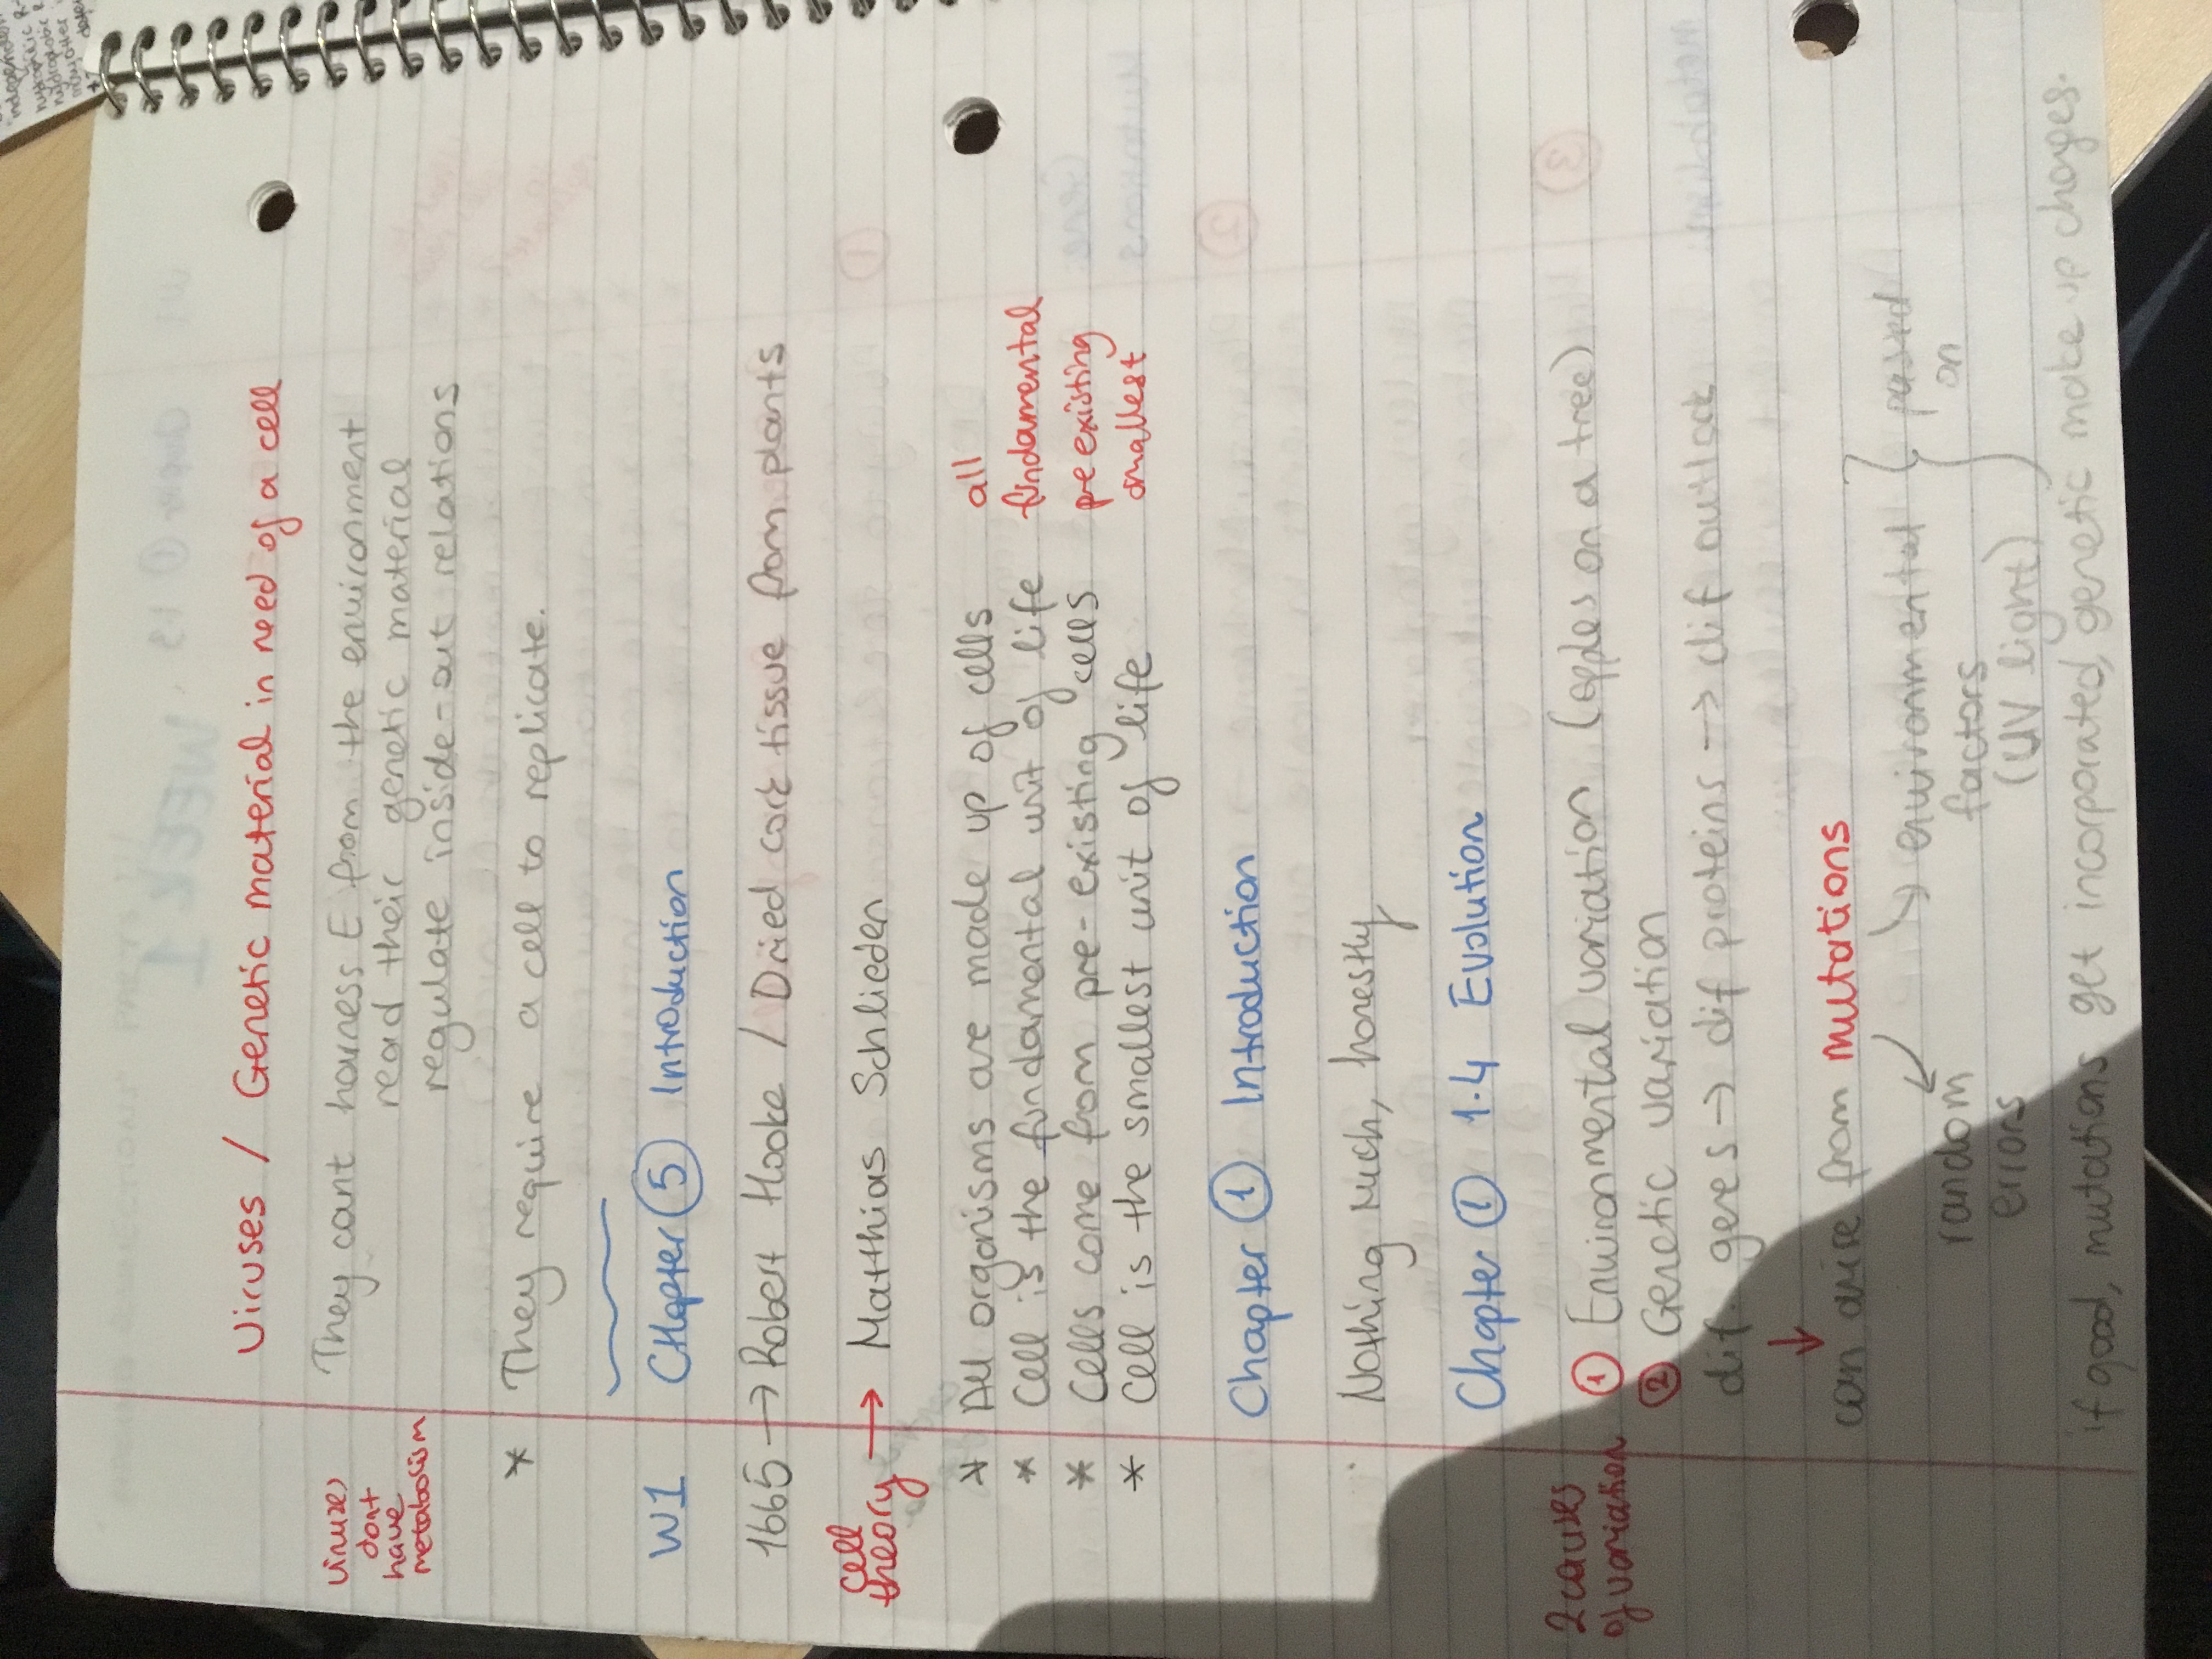 Viruses / Genetic material in need of a cell
viruses dont have metabolism
They cant harness E from the environment
read their genetic material
regulate inside-out relations
* They require a cell to replicate.
W1 Chapter 5 Introduction
1665 → Robert Hooke / Dried cork tissue from plants
cell theory → Matthias Schlieden
* All organisms are made up of cells all
* Cell is the fundamental unit of life fundamental
* Cells come from pre-existing cells preexisting
* Cell is the smallest unit of life smallest
Chapter 1 Introduction
Nothing Much, honestly
Chapter 1 1.4 Evolution
2 causes of variation
1 Environmental variation (apples on a tree)
2 Genetic variation
dif. genes → dif proteins → dif outlook
↓
can arise from mutations
random errors
environmental factors (UV light)
passed on
if good, mutations get incorporated, genetic make up changes.